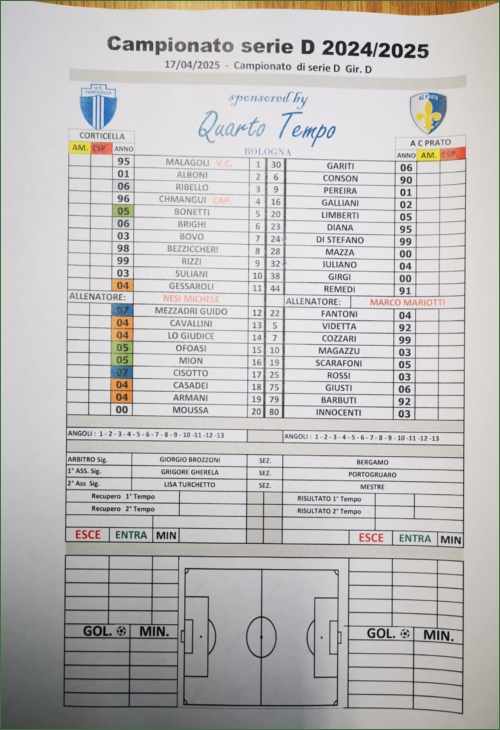 Campionato serie D 2024/2025
17/04/2025 - Campionato di serie D Gir. D
U.S. CORTICELLA
A C PRATO
sponsored by
Quarto Tempo
BOLOGNA
CORTICELLA A C PRATO
AM. ESP. ANNO ANNO AM. ESP.
95 MALAGOLI V.C. 1 30 GARITI 06
01 ALBONI 2 6 CONSON 90
06 RIBELLO 3 9 PEREIRA 01
96 CHMANGUI CAP. 4 16 GALLIANI 02
05 BONETTI 5 20 LIMBERTI 05
06 BRIGHI 6 23 DIANA 95
03 BOVO 7 24 DI STEFANO 99
98 BEZZICCHERI 8 28 MAZZA 00
99 RIZZI 9 32 IULIANO 04
03 SULIANI 10 38 GIRGI 00
04 GESSAROLI 11 44 REMEDI 91
ALLENATORE: NESI MICHELE ALLENATORE: MARCO MARIOTTI
07 MEZZADRI GUIDO 12 22 FANTONI 04
04 CAVALLINI 13 5 VIDETTA 92
04 LO GIUDICE 14 7 COZZARI 99
05 OFOASI 15 10 MAGAZZU 03
05 MION 16 19 SCARAFONI 05
07 CISOTTO 17 25 ROSSI 03
04 CASADEI 18 75 GIUSTI 06
04 ARMANI 19 79 BARBUTI 92
00 MOUSSA 20 80 INNOCENTI 03
ANGOLI : 1 - 2 - 3 - 4 - 5 - 6 - 7 - 8 - 9 - 10 -11 -12 -13 ANGOLI : 1 - 2 - 3 - 4 - 5 - 6 - 7 - 8 - 9 - 10 -11 -12 -13
ARBITRO Sig. GIORGIO BROZZONI SEZ. BERGAMO
1° ASS. Sig. GRIGORE GHERELA SEZ. PORTOGRUARO
2° Ass Sig. LISA TURCHETTO SEZ. MESTRE
Recupero 1° Tempo RISULTATO 1° Tempo
Recupero 2° Tempo RISULTATO 2° Tempo
ESCE ENTRA MIN ESCE ENTRA MIN
GOL. MIN. GOL. MIN.